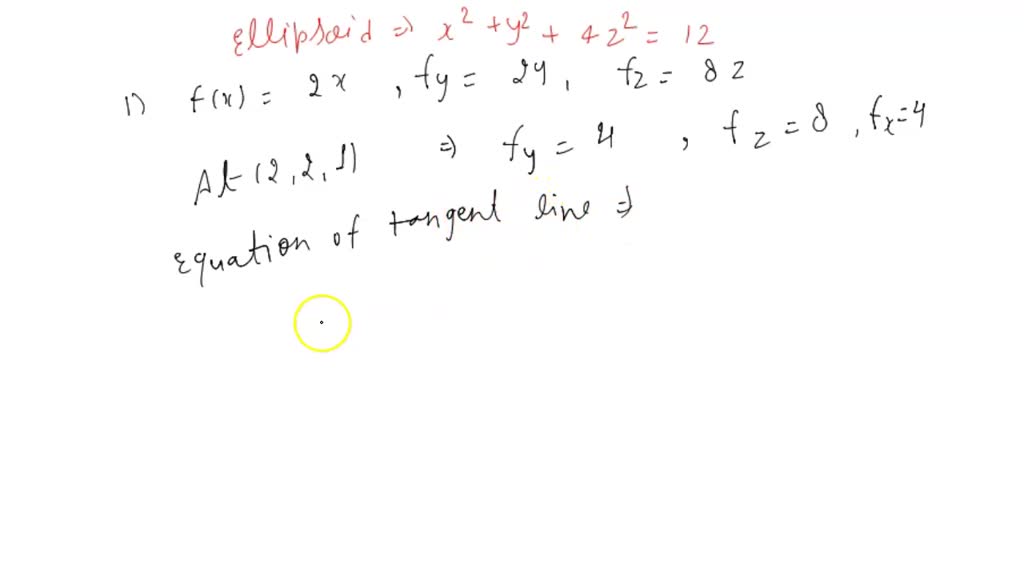 Ellipsoid ⇒ x² + y² + 4z² = 12
1) f(x) = 2x , fy = 2y , fz = 8z
At (2,2,1) ⇒ fy = 4 , fz = 8 , fx = 4
Equation of tangent line ⇒